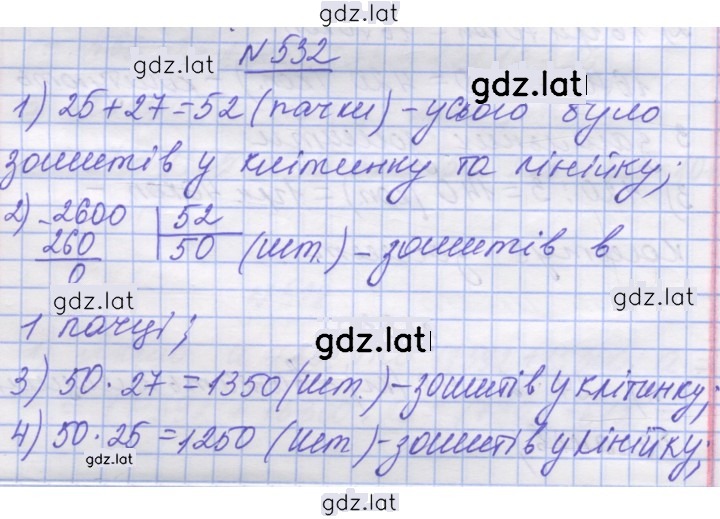 gdz.lat
№532
gdz.lat
gdz.lat
1) 25+27=52 (пачки) – усього було
зошитів у клітинку та лінійку;
2) -2600 | 52
260 | 50 (шт.) – зошитів в
0
gdz.lat
gdz.lat
1 пачці;
gdz.lat
3) 50·27=1350 (шт.) – зошитів у клітинку;
4) 50·25=1250 (шт.) – зошитів у лінійку;
gdz.lat
gdz.lat